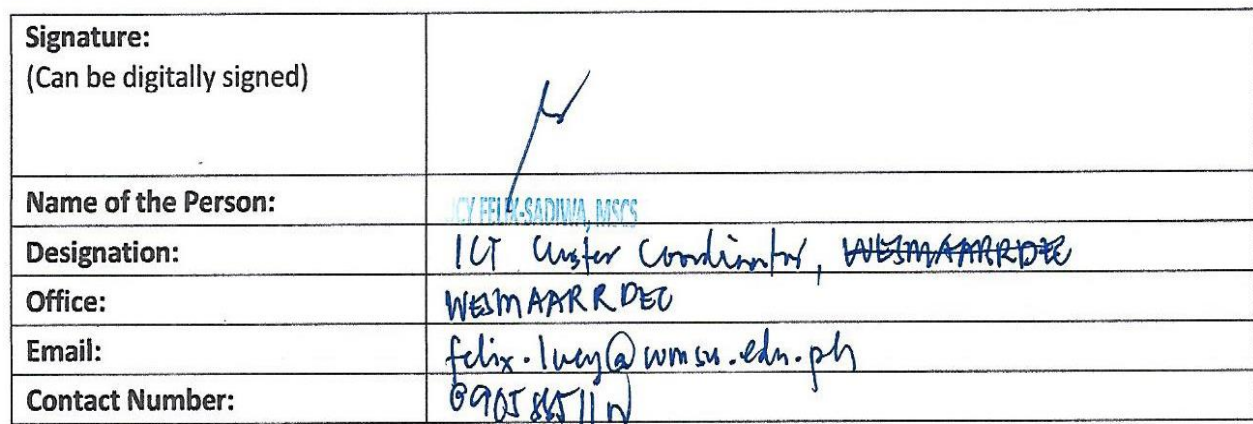 Signature:
(Can be digitally signed)
Name of the Person: CY FELIX-SADIWA, MSCS
Designation: ICT Cluster Coordinator, WESMAARRDEC
Office: WESMAARRDEC
Email: felix.lucy@wmsu.edu.ph
Contact Number: